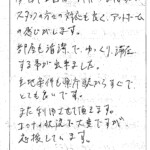 スタッフの方の対応も良く、アットホーム
の感じがします。
部屋も清潔で、ゆっくり滞在
する事が出来ました。
立地条件も駅からすぐで
とても良いです。
また利用させて頂きます。
コロナの状況で大変ですが
応援しています。